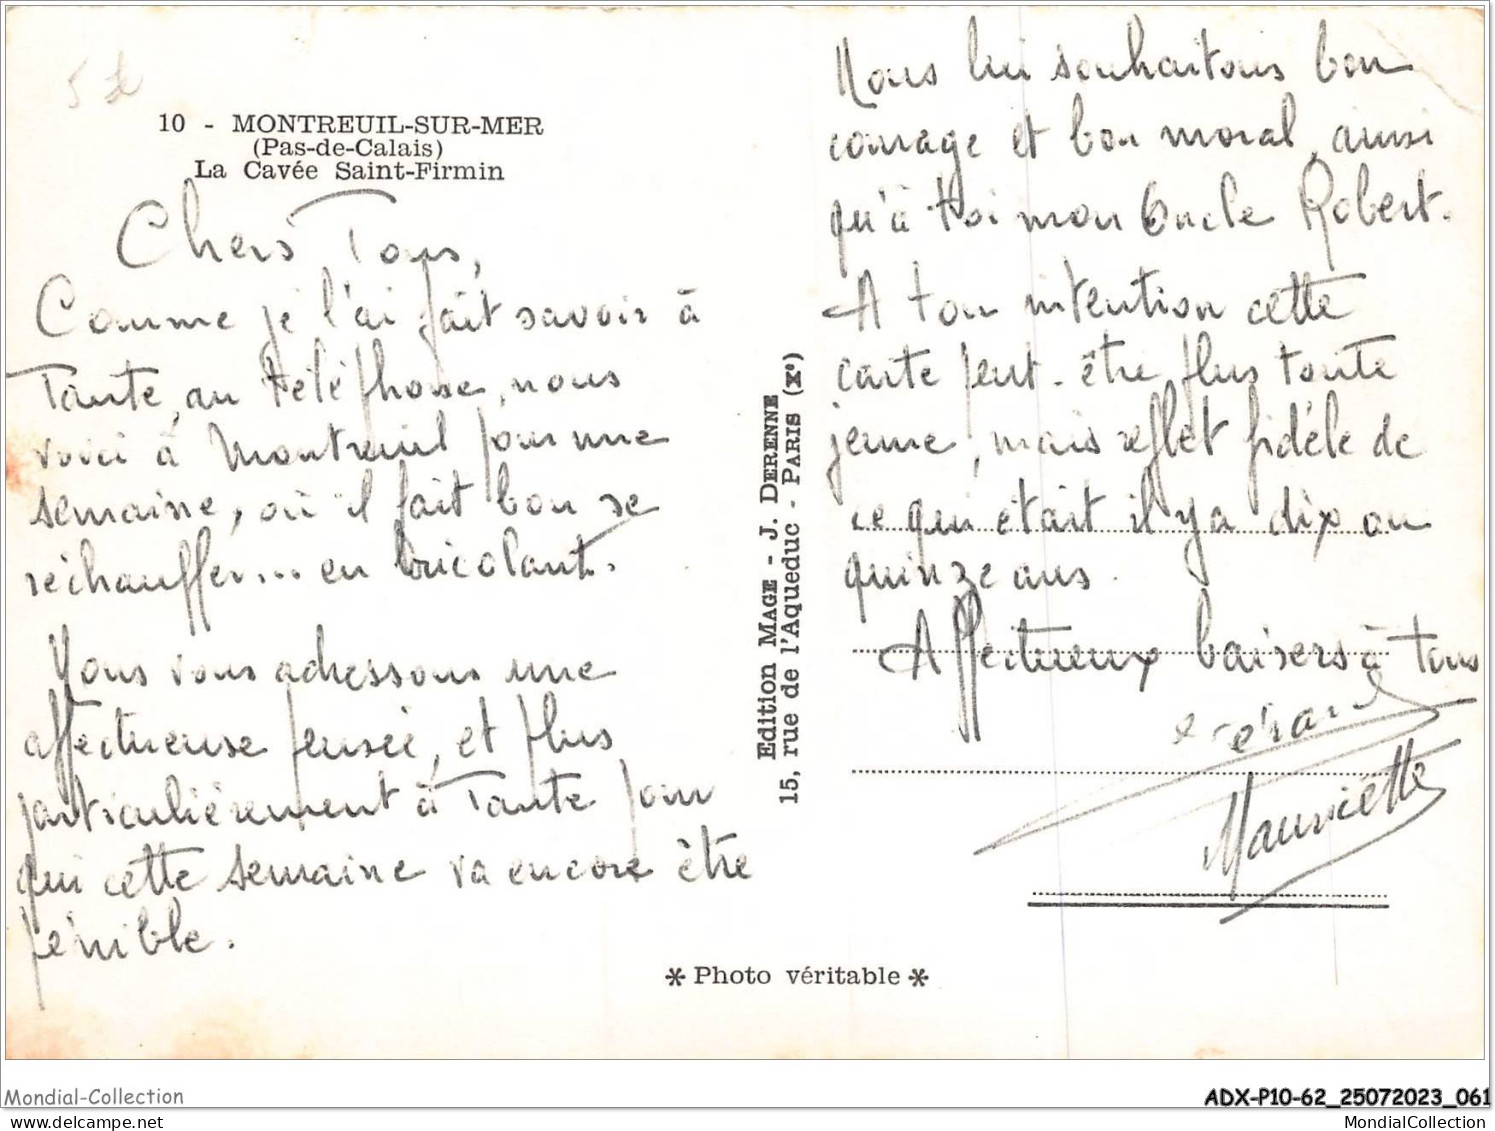 5€
10 - MONTREUIL-SUR-MER
(Pas-de-Calais)
La Cavée Saint-Firmin
Chers Tous,
Comme je l'ai fait savoir à
Tante, au téléphone, nous
voici à Montreuil pour une
semaine, où il fait bon se
réchauffer... en bricolant.
Nous vous adressons une
affectueuse pensée, et plus
particulièrement à Tante pour
qui cette semaine va encore être
pénible.
Edition MAGE - J. DERENNE
15, rue de l'Aqueduc - PARIS (Xe)
Nous lui souhaitons bon
courage et bon moral, ainsi
qu'à toi mon Oncle Robert.
A ton intention cette
carte peut-être plus toute
jeune, mais reflet fidèle de
ce qui était il y a dix ou
quinze ans.
Affectueux baisers à tous
Gérard
Mauricette
* Photo véritable *
Mondial-Collection
ADX-P10-62_25072023_061
MondialCollection